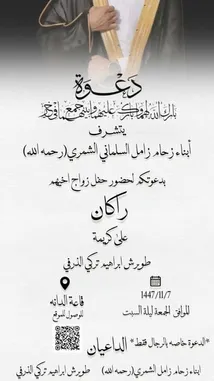 دعوة
بارك الله لهما وبارك عليهما وجمع بينهما في خير
يتشرف
أبناء زحام زامل السلماني الشمري(رحمه الله)
بدعوتكم لحضور حفل زواج اخيهم
راكان
على كريمة
طويرش ابراهيم تركي الذرفي
1447/11/7
الموافق الجمعة ليلة السبت
قاعة الدانه
للوصول للموقع
*الدعوة خاصه بالرجال فقط*
الداعيان
ابناء زحام زامل الشمري(رحمه الله)
طويرش ابراهيم تركي الذرفي